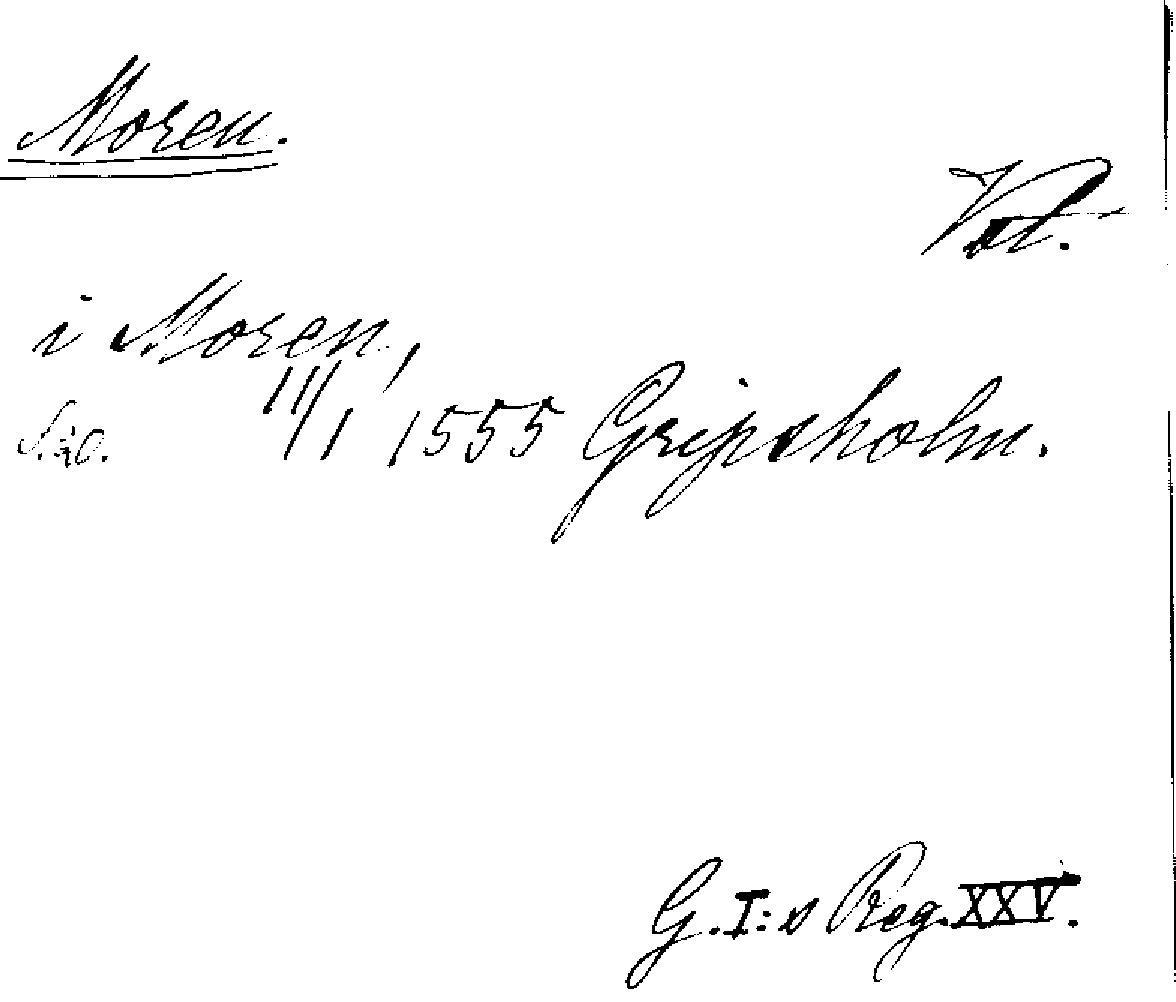 Moren.
Vat.
i Moren,
11/1 1555 Gripsholm.
G.I:s Reg. XXV.